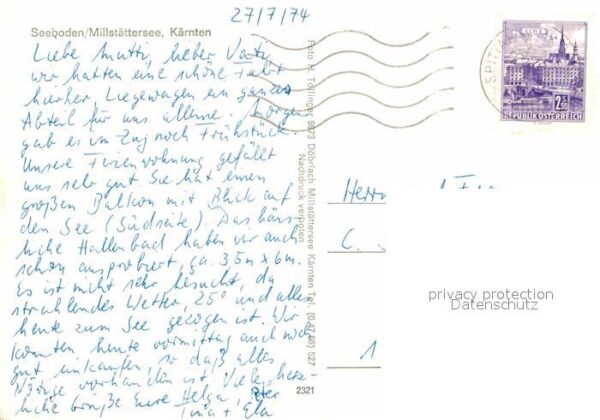 27/7/74
Seeboden/Millstättersee, Kärnten
Liebe Mutti, lieber Vati,
wir hatten eine schöne Fahrt
hierher. Liegewagen ein ganzes
Abteil für uns alleine. Morgens
gab es im Zug noch Frühstück.
Unsere Ferienwohnung gefällt
uns sehr gut. Sie hat einen
großen Balkon mit Blick auf
den See (Südseite). Das häus-
liche Hallenbad haben wir auch
schon ausprobiert, ca. 3,5m x 6m.
Es ist nicht sehr besucht, da
strahlendes Wetter, 25° und alles
heute zum See gezogen ist. Wir
konnten heute vormittag auch noch
gut einkaufen, so daß alles
Nötige vorhanden ist. Viele herz-
liche Grüße Eure Helga, Peter
+
Foto H. Tollinger 9873 Döbriach Millstättersee Kärnten Tel.
Nachdruck verboten
2321
SPITTAL
LINZ
2.50
REPUBLIK ÖSTERREICH
Herrn
C.
1
privacy protection
Datenschutz